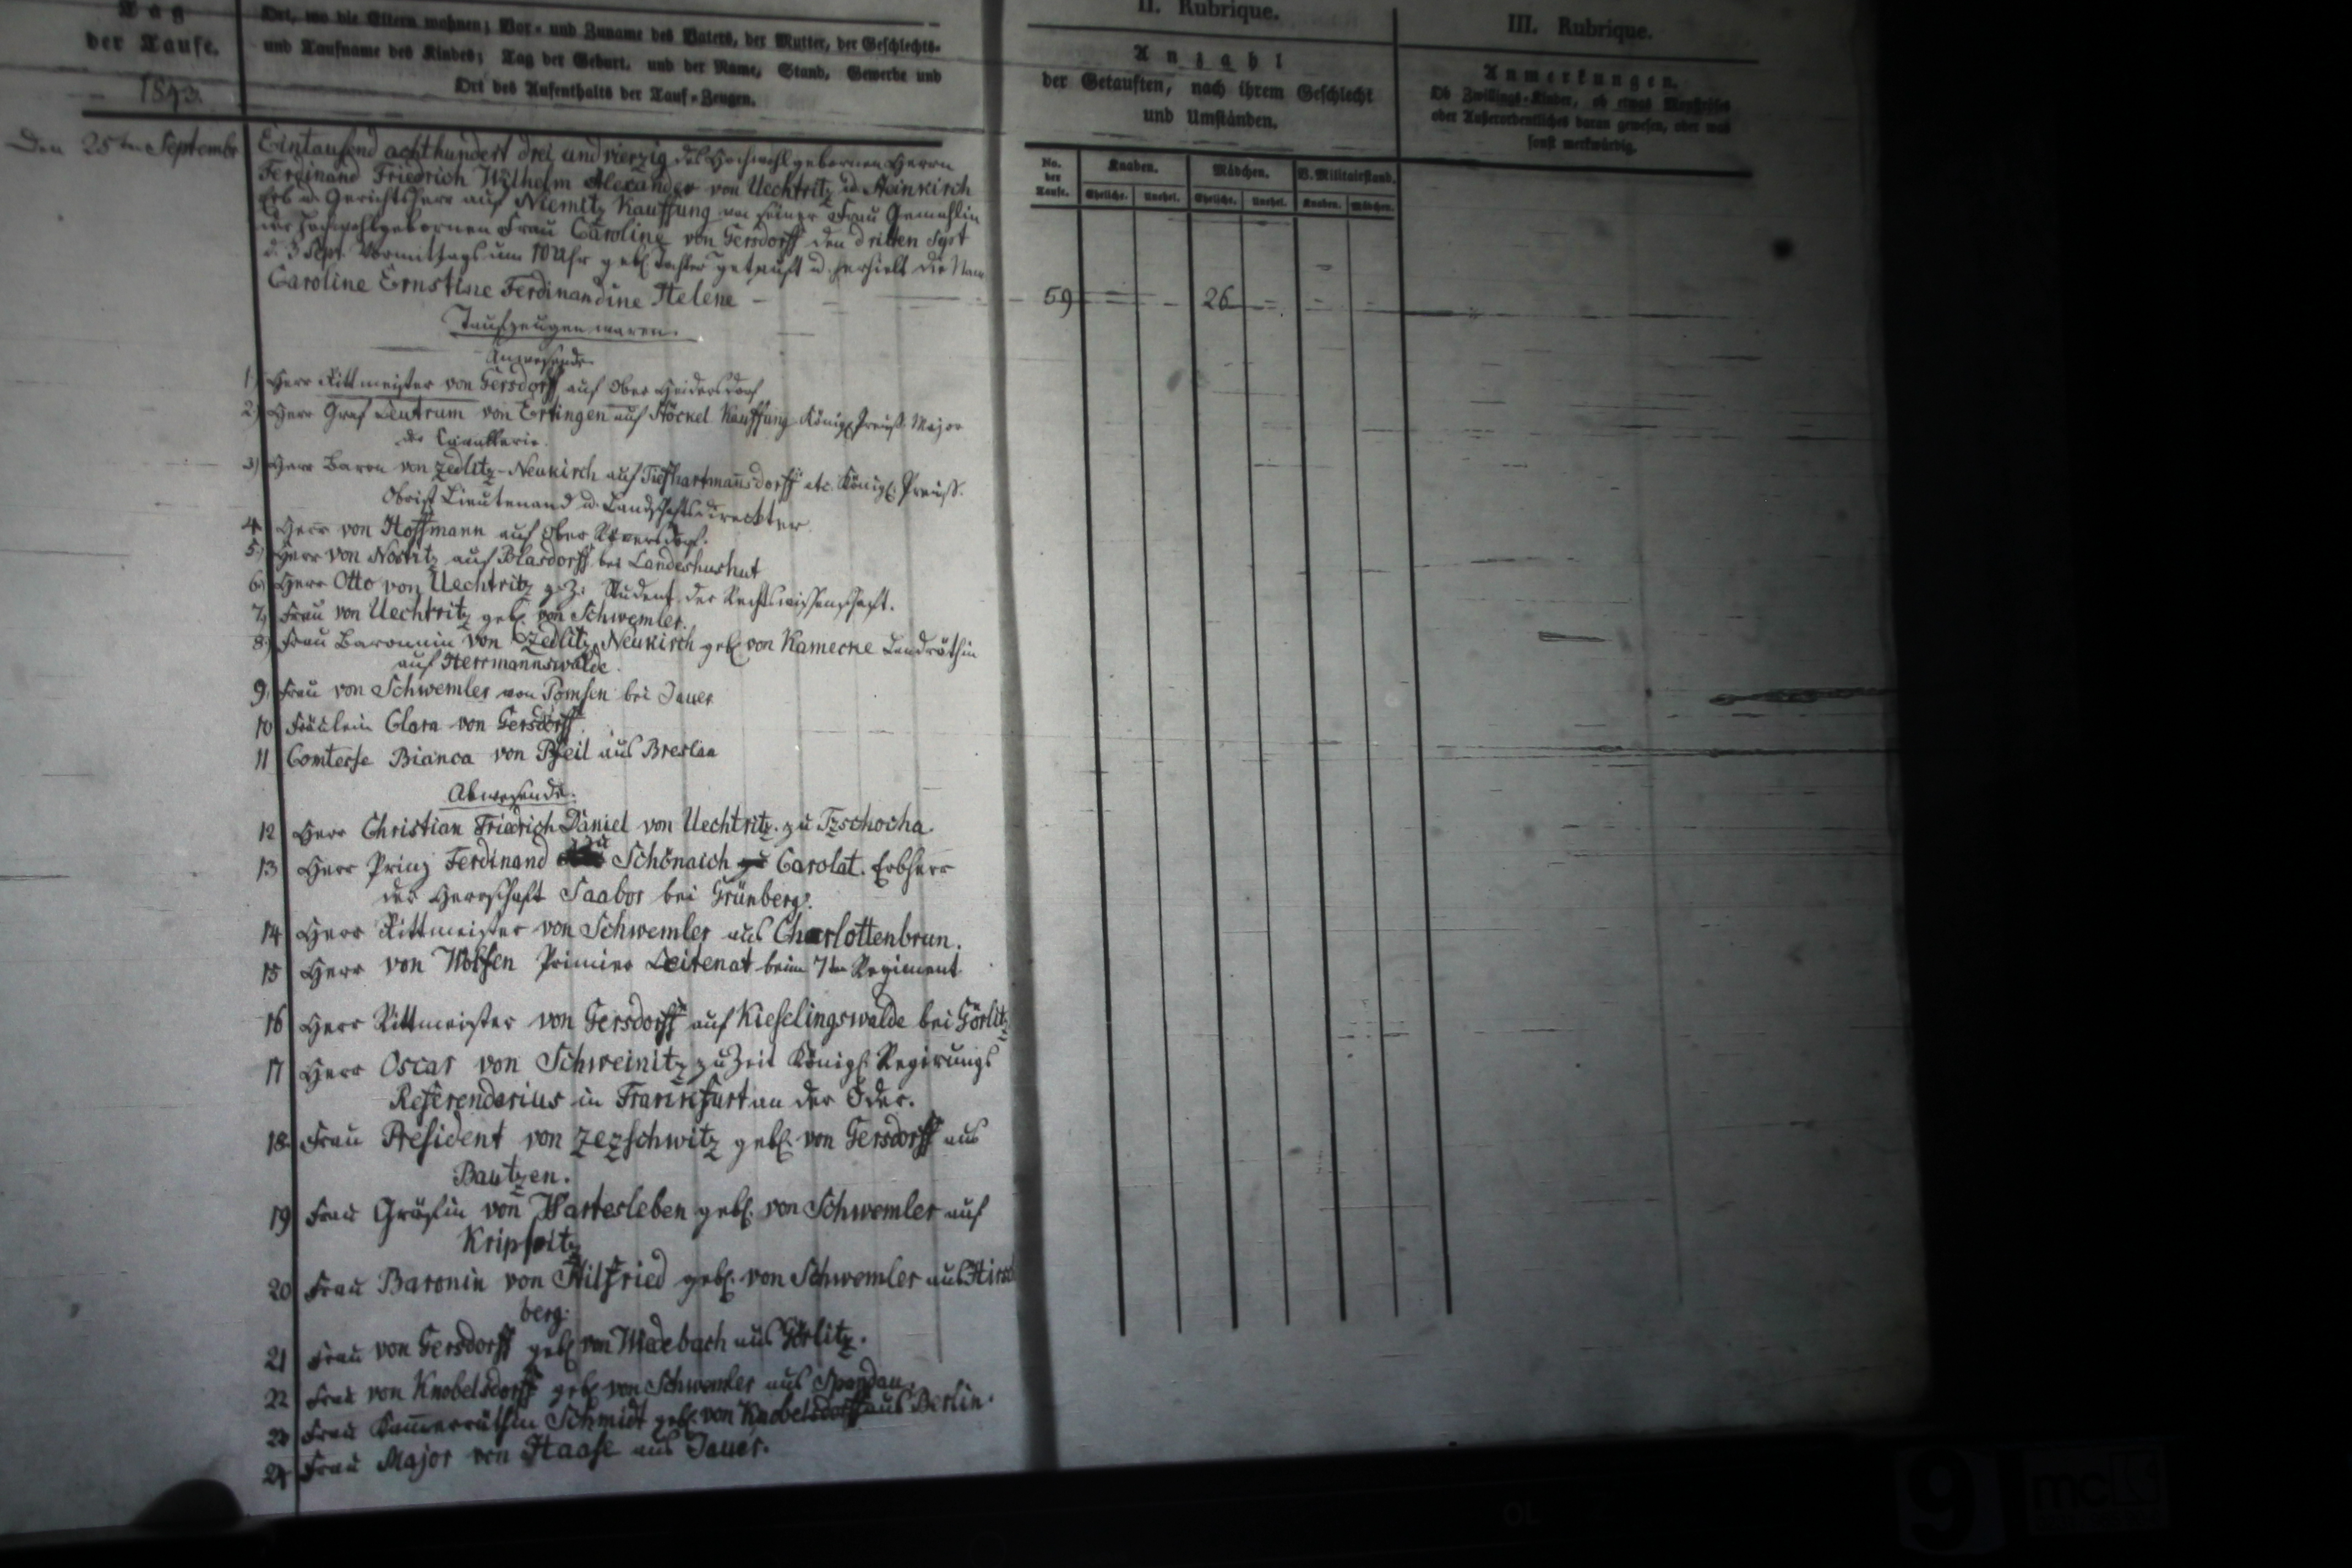 Tag
der Taufe.
1843.
Ort, wo die Eltern wohnen; Vor- und Zuname des Vaters, der Mutter, der Geschlechts-
und Taufname des Kindes; Tag der Geburt, und der Name, Stand, Gewerbe und
Ort des Aufenthalts der Tauf-Zeugen.
II. Rubrique.
Anzahl
der Getauften, nach ihrem Geschlecht
und Umständen.
III. Rubrique.
Anmerkungen.
Ob Zwillings-Kinder, ob etwas
oder Außerordentliches daran gewesen, oder was
sonst merkwürdig.
No. der Taufe.
Knaben. Mädchen. V. Militairstand.
Eheliche. Unehel. Eheliche. Unehel. Knaben. Mädchen.
Den 25ten Septembr
Eintausend achthundert drei und vierzig des Hochwohlgebornen Herrn
Ferdinand Friedrich Wilhelm Alexander von Uechtritz u. Steinkirch
Erb u. Gerichtsherr auf Niemitz Kauffung von seiner Frau Gemahlin
der Hochwohlgebornen Frau Caroline von Gersdorff den dritten Sept
d. 3 Sept. Vormittags um 10 Uhr geb. Tochter getauft u. erhielt die Nam
Caroline Ernstine Ferdinandine Helene
59 26
Taufzeugen waren.
Anwesende
1) Herr Rittmeister von Gersdorff auf Ober Heidersdorf
2) Herr Graf Leutrum von Ertingen auf Stöckel Kauffung Königl. Preuß. Major
der Cavallerie.
3) Herr Baron von Zedlitz-Neukirch auf Tiefhartmannsdorff etc. Königl. Preuß.
Obrist Lieutenand u. Landschaftsdirecktor
4. Herr von Hoffmann auf Ober
5.) Herr von Nostitz auf Blasdorff bei Landeshushut
6. Herr Otto von Uechtritz z. Z. Student der Rechtswissenschaft.
7.) Frau von Uechtritz geb. von Schwemler.
8.) Frau Baronnin von Zedlitz Neukirch geb. von Kamecke Landräthin
auf Herrmannswalde
9. Frau von Schwemler von Pomsen bei Jauer
10 Fräulein Clara von Gersdorff.
11 Comtesse Bianca von Pfeil aus Breslau
Abwesende.
12 Herr Christian Friedrich Daniel von Uechtritz. zu Tzschocha.
13 Herr Prinz Ferdinand zu Schönaich Carolat. Erbherr
der Herrschaft Saabor bei Grünberg.
14 Herr Rittmeister von Schwemler aus Charlottenbrun.
15 Herr von Primier Leitenat beim 7ten Regiment
16 Herr Rittmeister von Gersdorff auf Kieselingswalde bei Görlitz
17 Herr Oscar von Schweinitz zu Zeit Königl. Regirungs
Referendarius in Frankfurt an der Oder.
18. Frau President von Zezschwitz geb. von Gersdorff aus
Bautzen.
19 Frau Gräfin von Wartesleben geb. von Schwemler auf
20 Frau Baronin von Hilfried geb. von Schwemler aus Hirsch
berg.
21 Frau von Gersdorff geb. von Wiedebach aus Görlitz.
22 Frau von Knobelsdorff geb. von Schwemler aus Spandau.
23 Frau Kammerräthin Schmidt geb. von Knobelsdorff aus Berlin.
24 Frau Major von Haase aus Jauer.